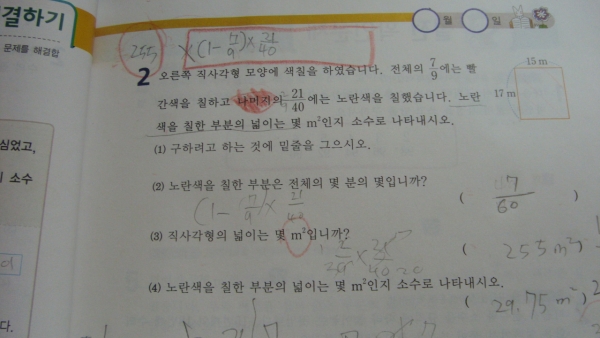 결하기
월 일
문제를 해결합
255 ×(1-7/9)×21/40
2 오른쪽 직사각형 모양에 색칠을 하였습니다. 전체의 7/9에는 빨
간색을 칠하고 나머지의 21/40에는 노란색을 칠했습니다. 노란
색을 칠한 부분의 넓이는 몇 m²인지 소수로 나타내시오.
15 m
17 m
(1) 구하려고 하는 것에 밑줄을 그으시오.
심었고,
(2) 노란색을 칠한 부분은 전체의 몇 분의 몇입니까?
( 7/60 )
소수
(1-7/9)×21/40
(3) 직사각형의 넓이는 몇 m²입니까?
( 255 m² )
(4) 노란색을 칠한 부분의 넓이는 몇 m²인지 소수로 나타내시오.
( 29.75 m²
다.